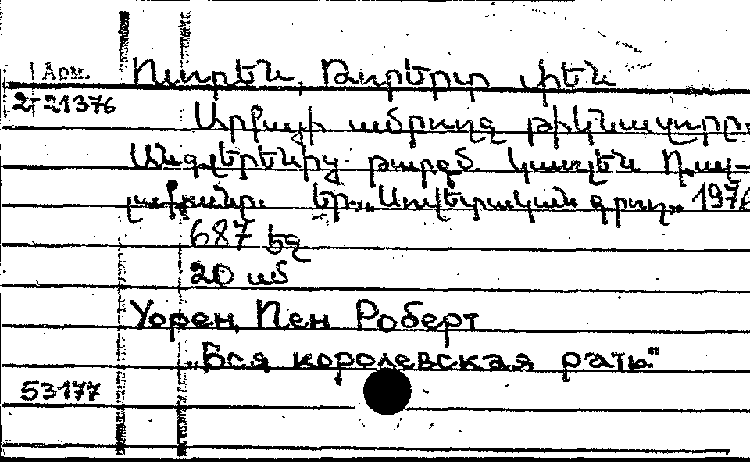 Арм. Ուորեն, Ռոբերտ Փեն
2-21376
Արքայի ամբողջ թիկնազորը:
Անգլերենից թարգմ. Կառլեն
եր. „Սովետական գրող„ 1976
687 էջ
20 սմ
Уорен, Пен Роберт
„Вся королевская рать"
53177